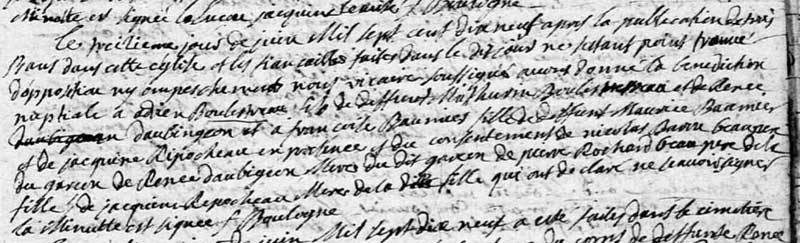 Minutte est signée
Le treizieme jour de juin Mil sept cent dix neuf apres la publication de trois
Bans dans cette eglise et les fiancailles faites dans le dit jour ne setant point trouvé
dopposition ny empeschement nous vicaire soussigné avons donné la benediction
nuptiale à adrien fils de deffunt Mathurin et de Renee
daubigeon et a francoise Baumier fille de deffunt Maurice Baumier
et de jacquine Ripocheau en presence et du consentement de nicolas Barre beaupere
du garcon de Renee daubigeon Mere du dit garcon de pierre Rochard beau pere de la
fille de jacquine Ripocheau Mere de la ditte fille qui ont declaré ne scavoir signer
la Minutte est signee f Boulogne
juin Mil sept dix neuf a esté faites dans le cimetiere
corps de deffunte Renee